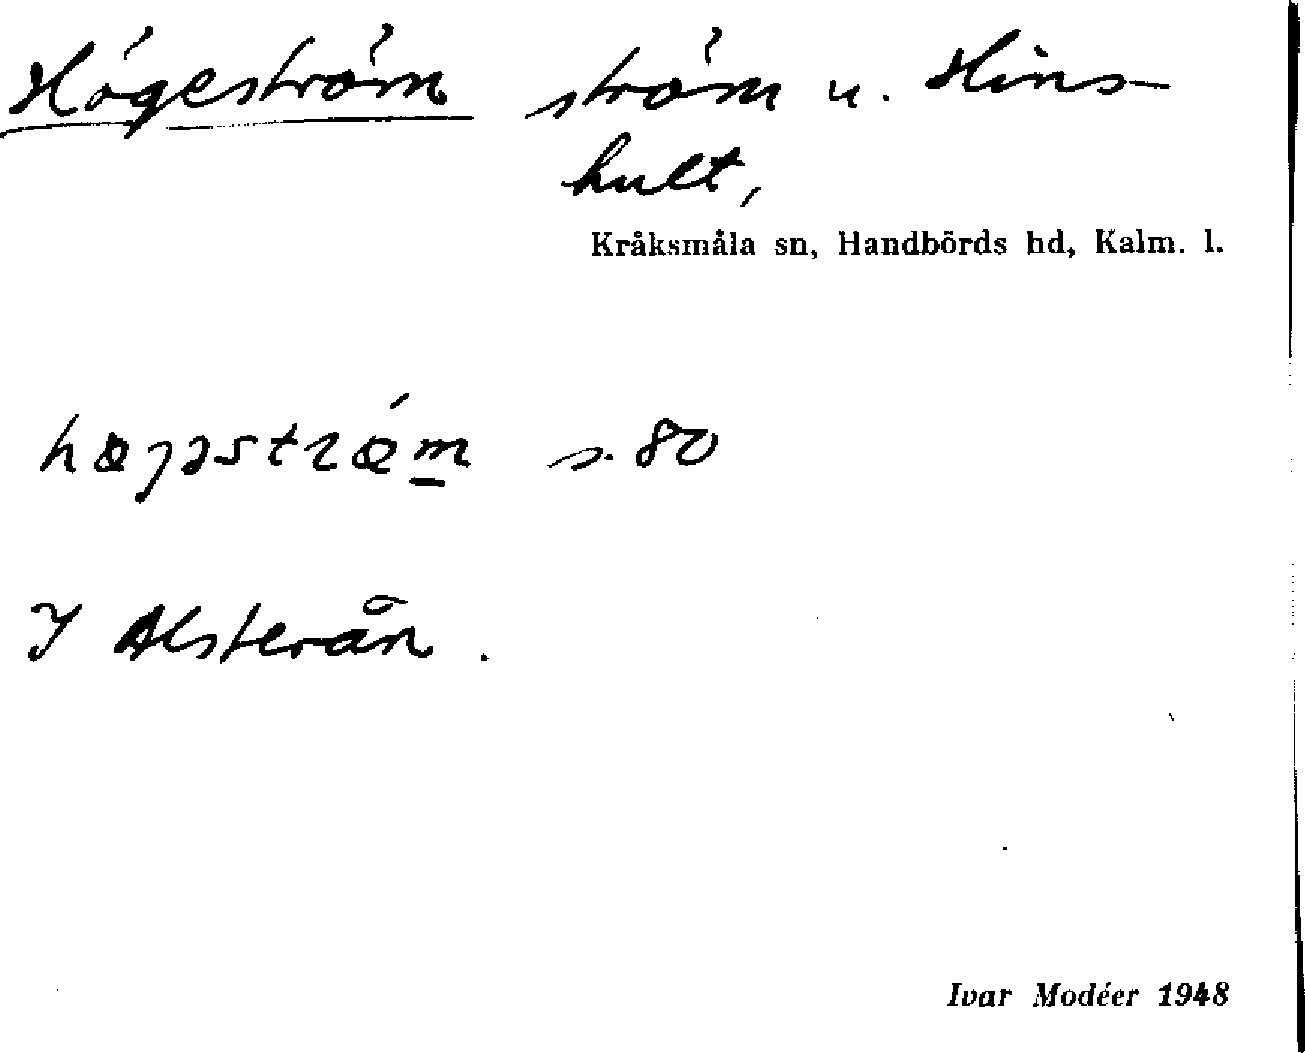 Högeström ström u. Hins-
hult,
Kråksmåla sn, Handbörds hd, Kalm. l.
s. 80
I Alsterån.
Ivar Modéer 1948